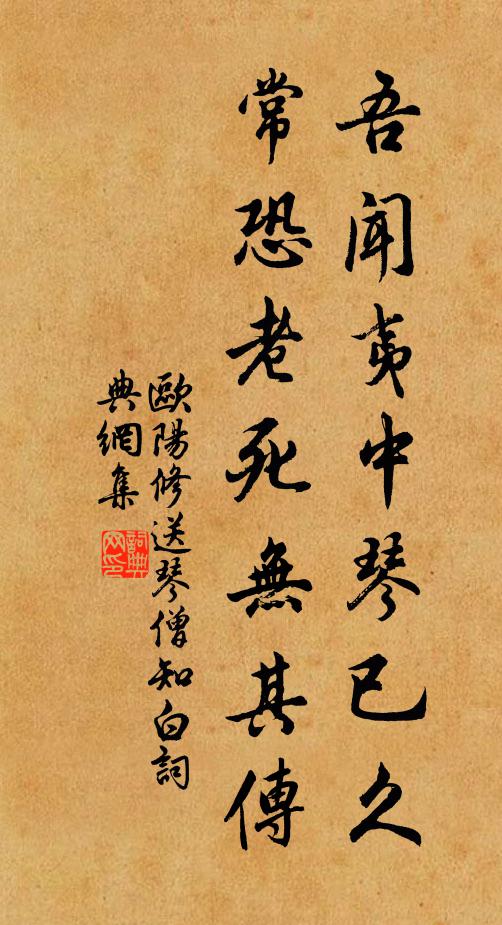 吾聞夷中琴已久
常恐老死無其傳
歐陽修送琴僧知白詞
典網集
詞典
网印